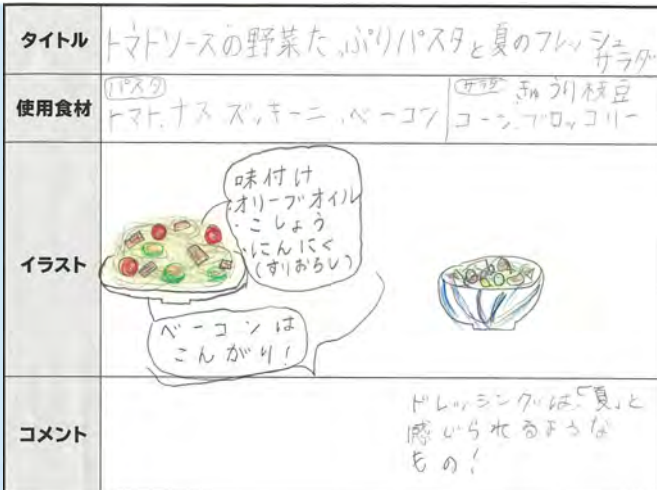 タイトル
トマトソースの野菜たっぷりパスタと夏のフレッシュ
サラダ
使用食材
パスタ
トマト、ナス ズッキーニ、ベーコン
サラダ きゅうり枝豆
コーン、ブロッコリー
イラスト
味付け
・オリーブオイル
・こしょう
・にんにく
(すりおろし)
ベーコンは
こんがり!
コメント
ドレッシングは、「夏」と
感じられるような
もの!